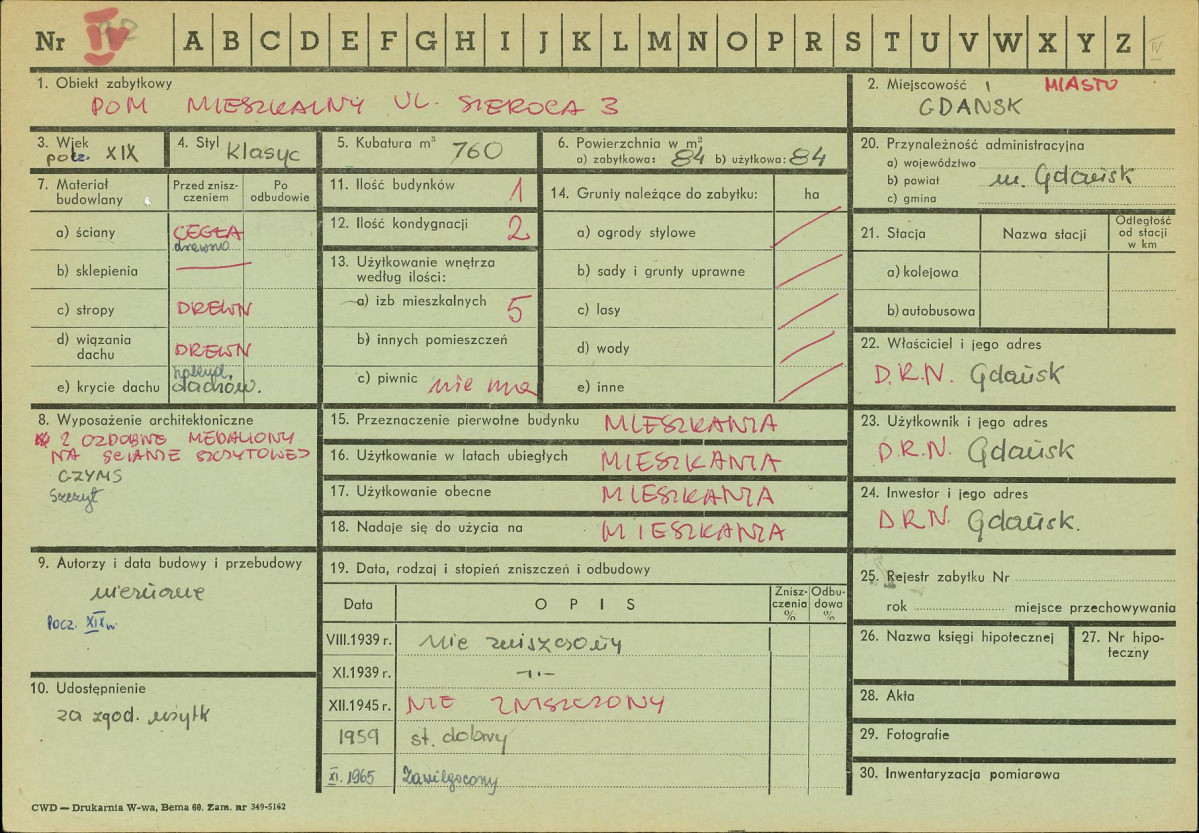 Nr IV A B C D E F G H I J K L M N O P R S T U V W X Y Z IV
1. Obiekt zabytkowy
DOM MIESZKALNY UL. SIEROCA 3
2. Miejscowość MIASTO
GDAŃSK
3. Wiek
pocz. XIX
4. Styl Klasyc
5. Kubatura m³ 760
6. Powierzchnia w m³
a) zabytkowa: 84 b) użytkowa: 84
20. Przynależność administracyjna
a) województwo
b) powiat m. Gdańsk
c) gmina
7. Materiał budowlany
Przed zniszczeniem
Po odbudowie
a) ściany CEGŁA
drewno
b) sklepienia —
c) stropy DREWN
d) wiązania dachu DREWN
e) krycie dachu dachów.
11. Ilość budynków 1
12. Ilość kondygnacji 2
13. Użytkowanie wnętrza
według ilości:
a) izb mieszkalnych 5
b) innych pomieszczeń
c) piwnic nie ma
14. Grunty należące do zabytku: ha
a) ogrody stylowe
b) sady i grunty uprawne
c) lasy
d) wody
e) inne
21. Stacja Nazwa stacji Odległość od stacji w km
a) kolejowa
b) autobusowa
22. Właściciel i jego adres
D.R.N. Gdańsk
8. Wyposażenie architektoniczne
2 OZDOBNE MEDALIONY
NA ŚCIANIE SZCZYTOWEJ
GZYMS
Szczyt
15. Przeznaczenie pierwotne budynku MIESZKANIA
16. Użytkowanie w latach ubiegłych MIESZKANIA
17. Użytkowanie obecne MIESZKANIA
18. Nadaje się do użycia na MIESZKANIA
23. Użytkownik i jego adres
D.R.N. Gdańsk
24. Inwestor i jego adres
D.R.N. Gdańsk.
9. Autorzy i data budowy i przebudowy
nieznane
Pocz. XIX w.
10. Udostępnienie
za zgod. użytk
19. Data, rodzaj i stopień zniszczeń i odbudowy
Data OPIS Zniszczenia % Odbudowa %
VIII.1939 r. nie zniszczony
XI.1939 r. -"-
XII.1945 r. NIE ZNISZCZONY
1959 st. dobry
XI. 1965 Zawilgocony
25. Rejestr zabytku Nr
rok miejsce przechowywania
26. Nazwa księgi hipotecznej
27. Nr hipoteczny
28. Akta
29. Fotografie
30. Inwentaryzacja pomiarowa
CWD — Drukarnia W-wa, Bema 60. Zam. nr 349-5162